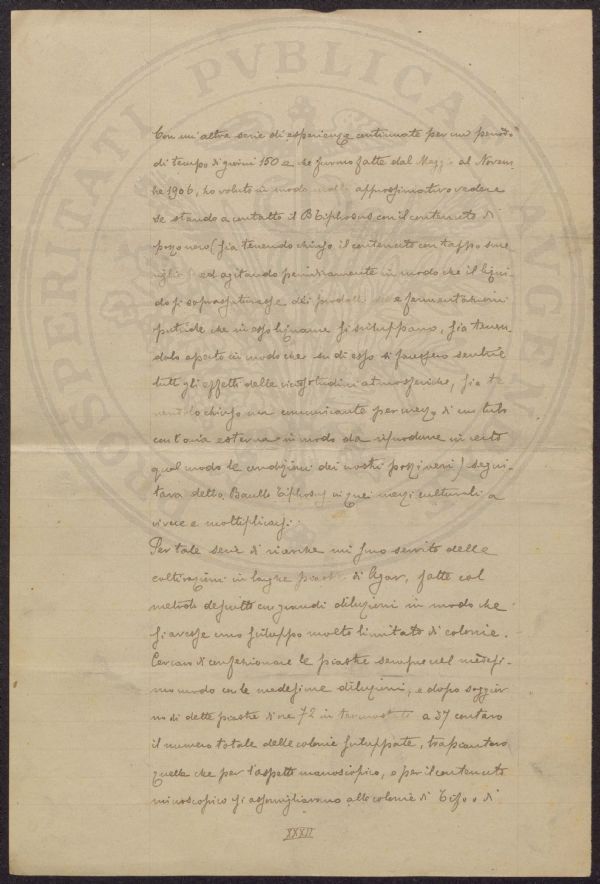 PROSPERITATI PVBLICAE AVGENDAE
Con un'altra serie di esperienze continuate per un periodo
di tempo di giorni 150 e che furono fatte dal Maggio al Novem-
bre 1906, ho voluto in modo molto approssimativo vedere
se stando a contatto il B Tiphosus con il contenuto di
pozzo nero (sia tenendo chiuso il contenuto con tappo sme
ed agitando periodicamente in modo che il liqui-
do si soprassaturasse dei prodotti di fermentazioni
putride che in esso liquame si sviluppano, sia tenen-
dolo aperto in modo che su di esso si facessero sentire
tutti gli effetti delle vicissitudini atmosferiche, sia te
nendolo chiuso ma comunicante per mezzo di un tubo
con l'aria esterna in modo da riprodurre in certo
qual modo le condizioni dei nostri pozzi neri) segui-
tava detto Bacillo Tiphosus in quei mezzi culturali a
vivere e moltiplicarsi.
Per tale serie di ricerche mi sono servito delle
coltivazioni in larghe piastre di Agar, fatte col
metodo descritto in grandi diluzioni in modo che
si avesse uno sviluppo molto limitato di colonie.
Cercavo di confezionare le piastre sempre nel medesi-
mo modo con le medesime diluzioni, e dopo soggior
no di dette piastre di ore 72 in termostato a 37 contavo
il numero totale delle colonie sviluppate, trapiantavo
quelle che per l'aspetto macroscopico, e per il contenuto
microscopico si assomigliavano alle colonie di Tifo o di
XXXII